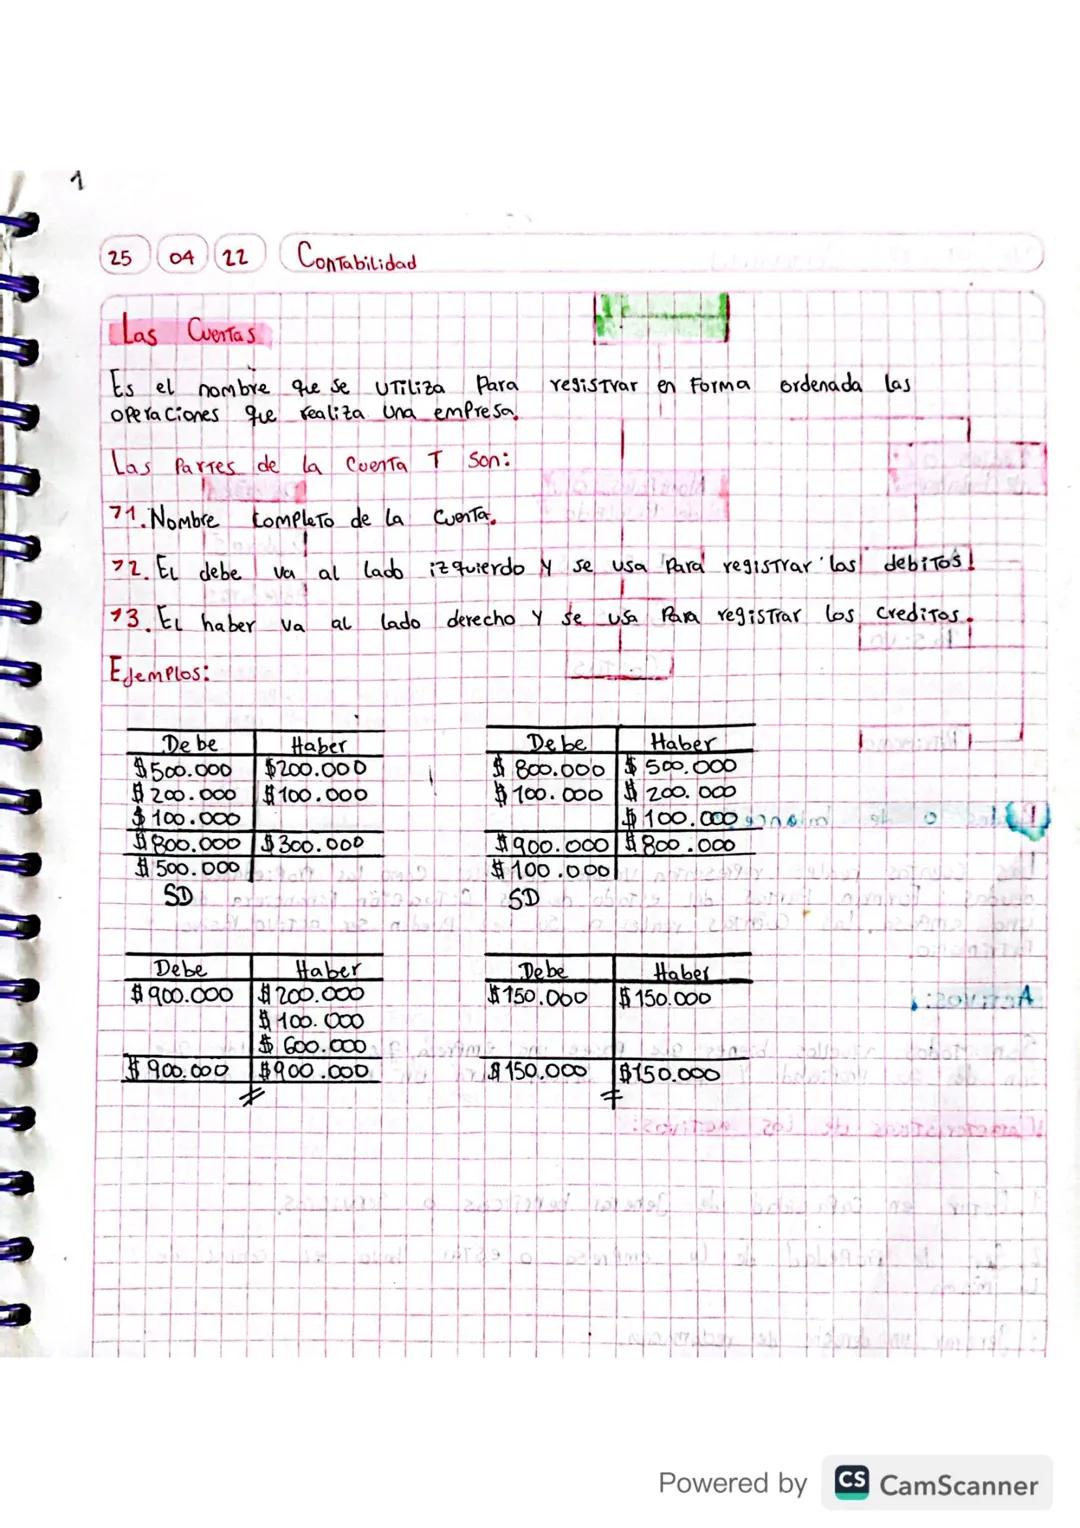 1
25 04 22 Contabilidad
Las Cuentas
Es el nombre que se utiliza para registrar en forma ordenada las
operaciones que realiza una empresa.
Las partes de la cuenta T son:
71. Nombre completo de la cuenta.
72. El debe va al lado izquierdo y se usa para registrar los debitos!
73. El haber va al lado derecho y se usa para registrar los creditos.
Ejemplos:
Debe Haber
$500.000 $200.000
$200.000 $100.000
$100.000
$800.000 $300.000
$500.000
SD
Debe Haber
$800.000 $500.000
$100.000 $200.000
$100.000
$900.000 $800.000
$100.000
SD
Debe Haber
$900.000 $200.000
$100.000
$600.000
$900.000 $900.000
Debe Haber
$150.000 $150.000
$150.000 $150.000
Powered by CS CamScanner